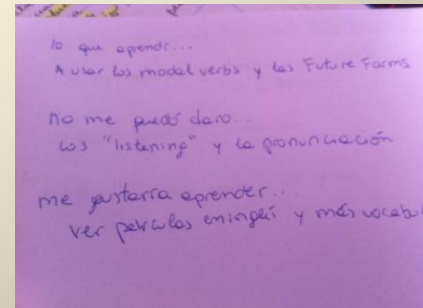 lo que aprendí...
A usar los modal verbs y las Future Forms
no me quedó claro...
los "listening" y la pronunciación
me gustaría aprender...
ver películas en inglés y más vocabul